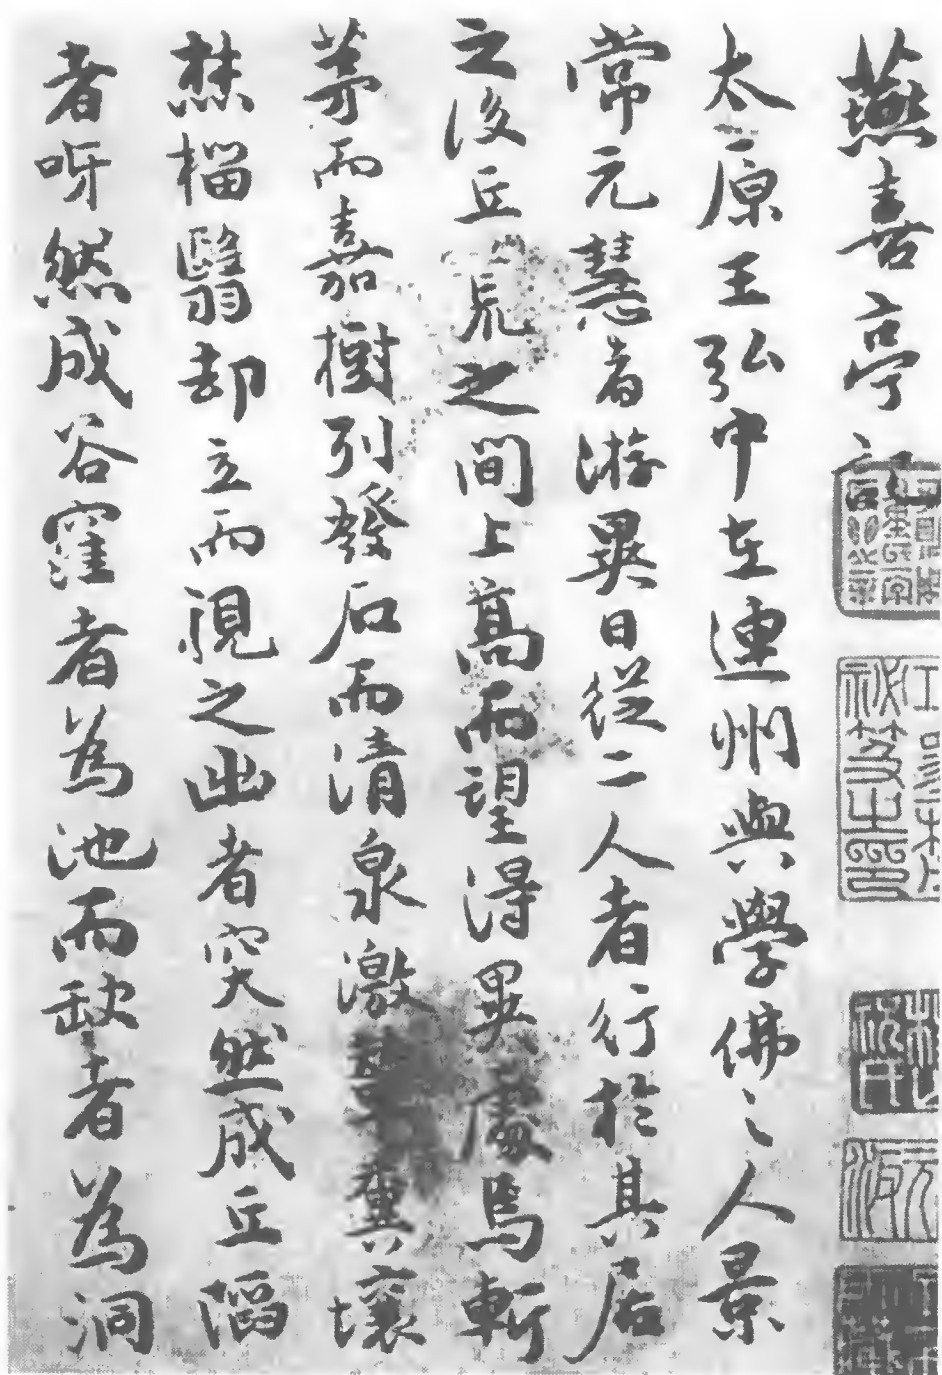 燕喜亭記
太原王弘中在連州與學佛之人景
常元慧者游異日從二人者行於其居
之後丘荒之間上高而望得異處焉斬
茅而嘉樹列發石而清泉激輦糞壤
燓椔翳却立而視之出者突然成丘陷
者呀然成谷窪者為池而缺者為洞